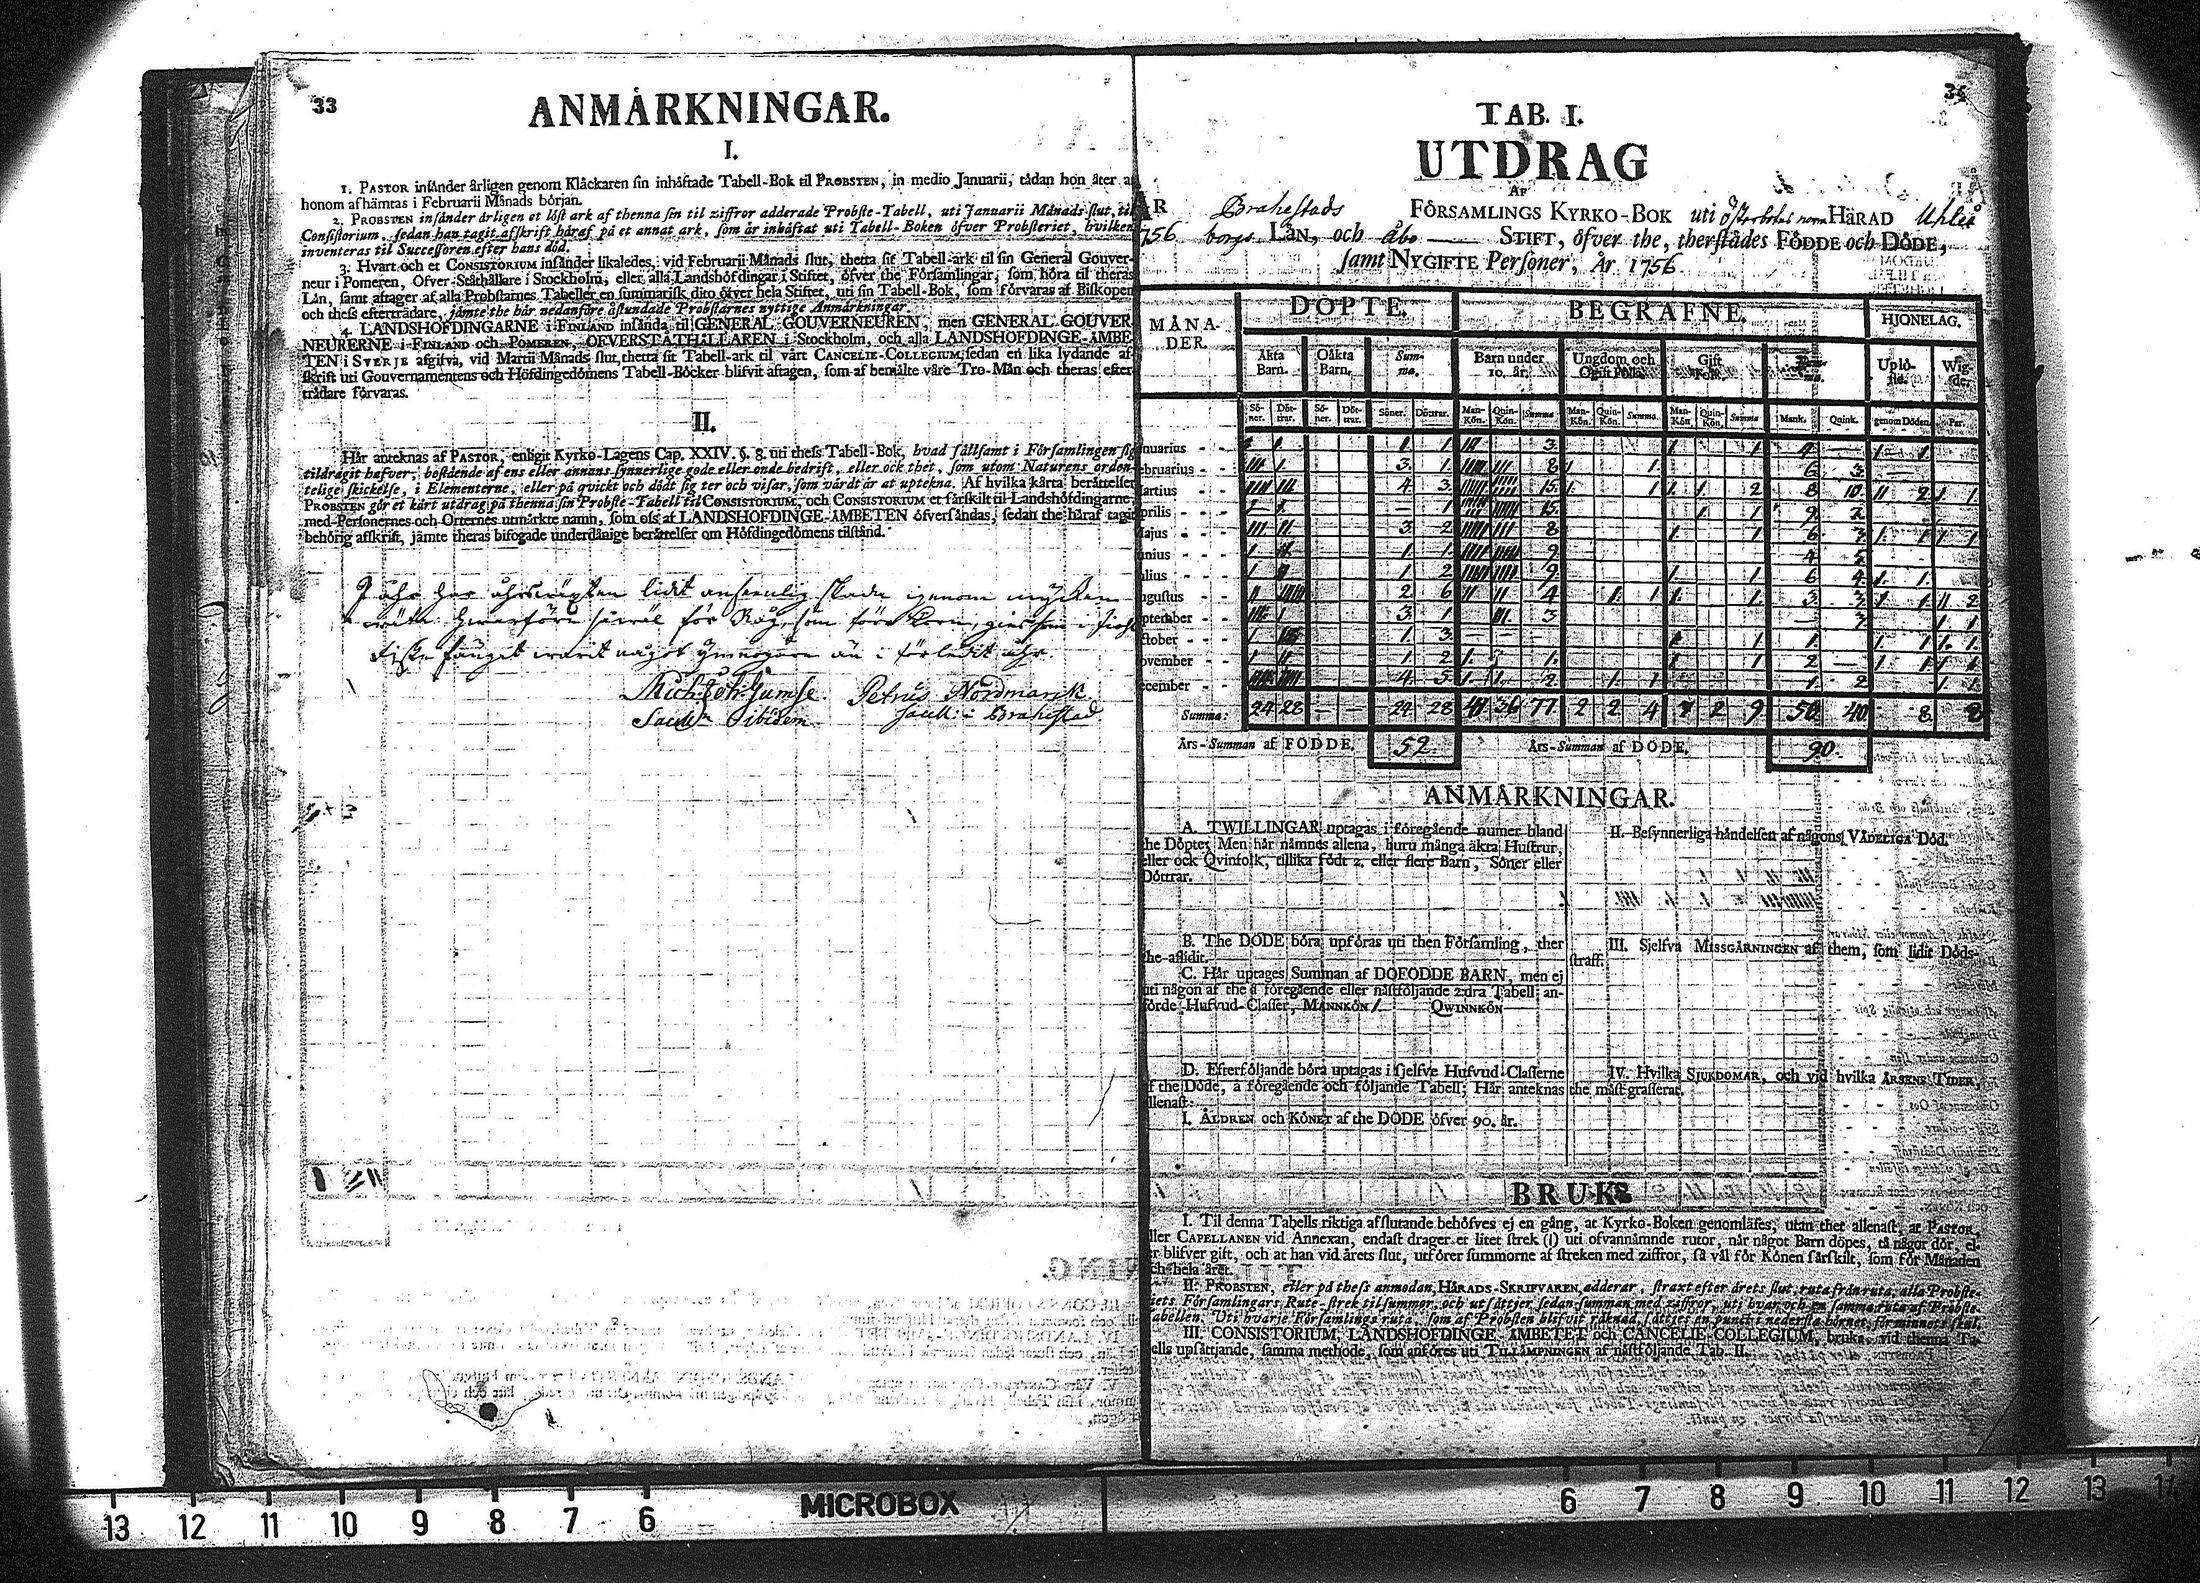 33
ANMÅRKNINGAR.
I.
1. PASTOR insånder årligen genom Klåckaren sin inhåftade Tabell-Bok til PROBSTEN, in medio Januarii, tådan hon åter
honom afhåmtas i Februarii Månads början.
2. PROBSTEN insånder årligen et löst ark af thenna sin til ziffror adderade Probste-Tabell, uti Januarii Månads slut, til
Consistorium, sedan han tagit afskrift håraf på et annat ark, som år inhåftat uti Tabell-Boken öfver Probsteriet, hvilken
inventeras til Successoren efter hans död.
3. Hvart och et CONSISTORIUM insånder likaledes, vid Februarii Månads slut, thetta sit Tabell-ark til sin General Gouver-
neur i Pomeren, Öfver-Ståthållare i Stockholm, eller alla Landshöfdingar i Stiftet, öfver the Församlingar, som höra til theras
Lån, samt aftager af alla Probstarnes Tabeller en summarisk dito öfver hela Stiftet, uti sin Tabell-Bok, som förvaras af Biskopen
och thess eftertrådare, jåmte the hår nedanföre åstundade Probstarnes nyttige Anmårkningar.
4. LANDSHÖFDINGARNE i FINLAND insånda til GENERAL GOUVERNEUREN, men GENERAL GOUVER
NEURERNE i FINLAND och POMEREN, ÖFVERSTÅTHÅLLAREN i Stockholm, och alla LANDSHÖFDINGE-ÅMBE-
TEN i SVERJE afgifva, vid Martii Månads slut, thetta sit Tabell-ark til vårt CANCELIE-COLLEGIUM, sedan en lika lydande af-
skrift uti Gouvernamentens och Höfdingedömens Tabell-Böcker blifvit aftagen, som af bemålte våre Tro-Mån och theras efter
trådare förvaras.
II.
Hår anteknas af PASTOR, enligit Kyrko-Lagens Cap. XXIV. §. 8. uti thess Tabell-Bok, hvad sållsamt i Församlingen sig
tildragit hafver, bestående af ens eller annans synnerlige gode eller onde bedrift, eller ock thet, som utom Naturens orden-
telige skickelse, i Elementerne, eller på qvickt och dödt sig ter och visar, som vårdt år at uptekna. Af hvilka kårta beråttelser
PROBSTEN gör et kårt utdrag på thenna sin Probste-Tabell til CONSISTORIUM, och CONSISTORIUM et sårskilt til Landshöfdingarne,
med Personernes och Orternes utmårkte namn, som oss af LANDSHÖFDINGE-ÅMBETEN öfversåndas, sedan the håraf tagit
behörig afskrift, jåmte theras bifogade underdånige beråttelser om Höfdingedömens tilstånd.
I åhr har åhrswäxten lidit ansenlig skada igenom mycken
wäta hwarföre såwäl för Råg, som före Korn,
fiske fånget warit något ymnogare än i förledit åhr.
Petrus Nordmarck
i Brahestad
TAB. I.
UTDRAG
AF
ÅR Brahestads FÖRSAMLINGS KYRKO-BOK uti Österbotns norra HÄRAD Uhleå
1756 borgs LÅN, och Åbo STIFT, öfver the, therstådes FÖDDE och DÖDE,
samt NYGIFTE Personer, År 1756.
MÅNA- DER. DÖPTE. BEGRAFNE. HJONELAG.
Åkta Barn. Oåkta Barn. Sum- ma. Barn under 10. år. Ungdom och Ogift Folk. Gift Folk. Uplö- ste. Wig- de.
Sö- ner. Döt- trar. Sö- ner. Döt- trar. Söner. Döttrar. Man- Kön. Quin- Kön. Summa Man- Kön. Quin- Kön. Summa Man- Kön. Quin- Kön. Summa Mank. Quink. genom Döden. Par.
Januarius 1 1 3 1 4 — 1
Februarius 3 1 8 1 6 3 —
Martius 4 3 15 1 2 8 10 2 1
Aprilis — 1 15 1 9
Majus 3 2 8 1 6 3 1 1
Junius 1 1 9 4 5
Julius 1 2 9 1 6 4 1
Augustus 2 6 4 1 1 3 3 1 2
September 3 1 3 — 3 1
October 1 3 — 1 1 1 1
November 1 2 1 1 2 — 1 1
December 4 5 2 1 1 2 1
Summa: 24 28 — — 24 28 41 36 77 2 2 4 7 2 9 50 40 8 8
Års-Summan af FÖDDE. 52. Års-Summan af DÖDE. 90.
ANMÅRKNINGAR.
A. TWILLINGAR uptagas i föregående numer bland
the Döpte; Men hår nåmnes allena, huru många åkta Hustrur,
eller ock Qvinfolk, tillika födt 2. eller flere Barn, Söner eller
Döttrar.
B. The DÖDE böra upföras uti then Församling, ther
the aflidit.
C. Hår uptages Summan af DÖFÖDDE BARN, men ej
uti någon af the å föregående eller nåstföljande 2:dra Tabell an-
förde Hufvud-Classer, MANNKÖN 1 QWINNKÖN
D. Efterföljande böra uptagas i sjelfve Hufvud-Classerne
af the Döde, å föregående och följande Tabell; Hår anteknas
allenast:
I. ÅLDREN och KÖNET af the DÖDE öfver 90. år.
II. Besynnerliga håndelsen af någons VÅDELIGA Död.
III. Sjelfva MISSGÅRNINGEN af them, som lidit Döds-
straff.
IV. Hvilka SJUKDOMAR, och vid hvilka ÅRSENS TIDER,
the måst grasserat.
BRUK
I. Til denna Tabells riktiga afslutande behöfves ej en gång, at Kyrko-Boken genomlåses, utan thet allenast, at PASTOR,
eller CAPELLANEN vid Annexan, endast drager et litet strek (|) uti ofvannåmnde rutor, når något Barn döpes, tå någor dör, el-
er blifver gift, och at han vid årets slut, utförer summorne af streken med ziffror, så vål för Könen sårskilt, som för Månaden
och hela året.
II. PROBSTEN, eller på thess anmodan, HÅRADS-SKRIFVAREN, adderar, straxt efter årets slut, ruta från ruta, alla Probste-
riets Församlingars Rute-strek til summor, och utsåttjer sedan summan med ziffror, uti hvar och en samma ruta af Probste-
tabellen. Uti hvarje Församlings ruta, som af Probsten blifvit råknad, såttjes en punct i nedersta hörnet, för minnets skul.
III. CONSISTORIUM, LANDSHÖFDINGE-ÅMBETET och CANCELIE-COLLEGIUM, bruka, vid thenna Ta-
bells upsåttjande, samma methode, som anföres uti TILLÅMPNINGEN af nåstföljande Tab. II.
13 12 11 10 9 8 7 6 MICROBOX 6 7 8 9 10 11 12 13 14